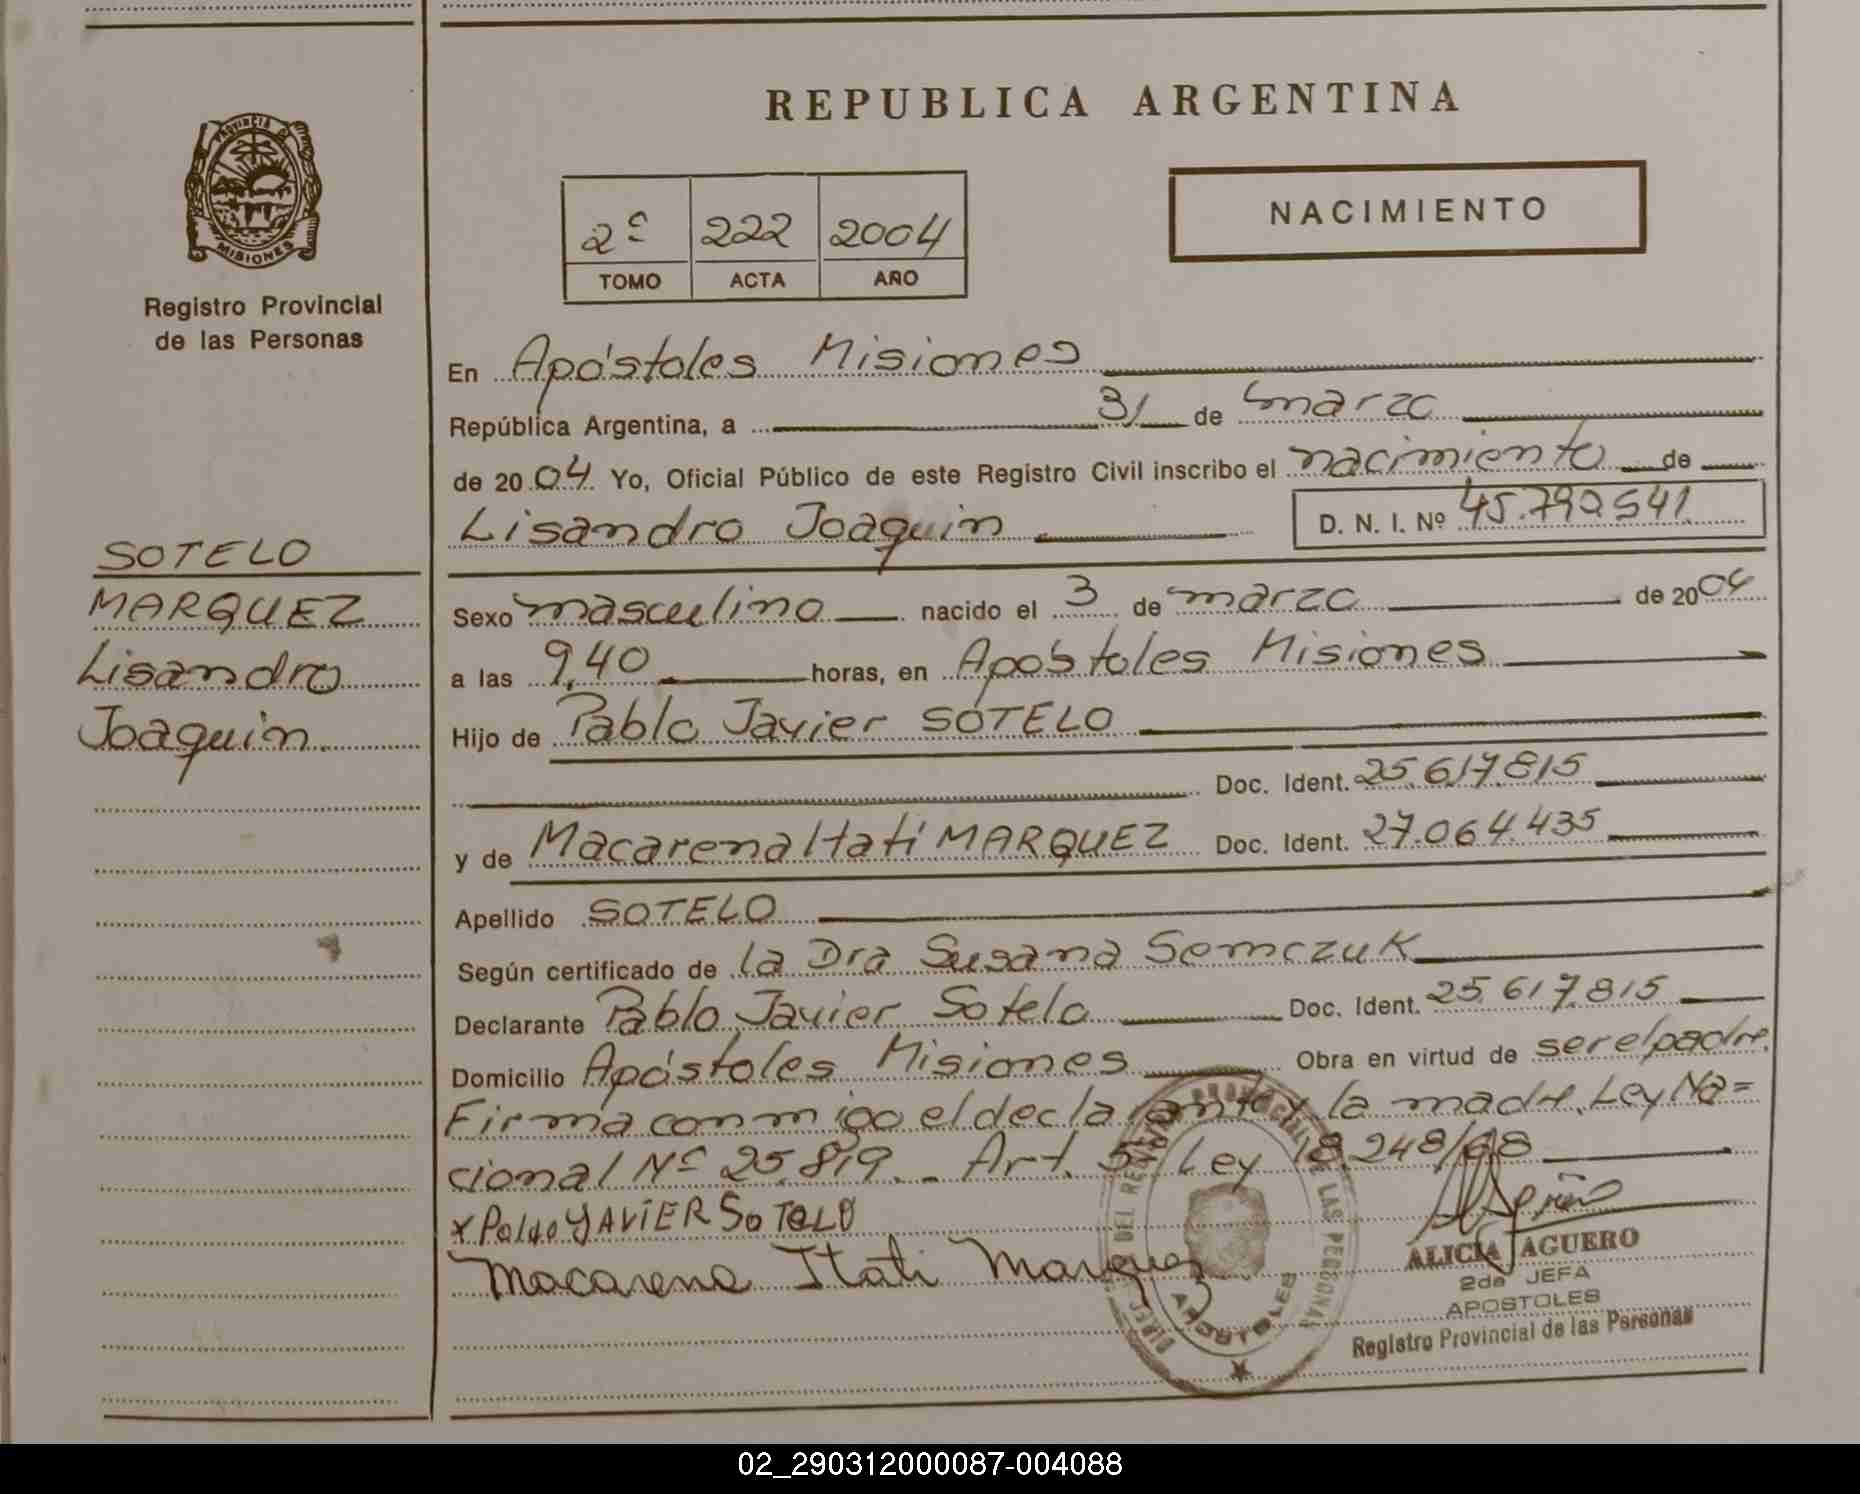 REPUBLICA ARGENTINA
PROVINCIA DE
MISIONES
Registro Provincial
de las Personas
2º 222 2004
TOMO ACTA AÑO
NACIMIENTO
En Apóstoles Misiones
República Argentina, a 31 de marzo
de 2004 Yo, Oficial Público de este Registro Civil inscribo el nacimiento de
Lisandro Joaquin D. N. I. Nº 45.790.541
SOTELO
MARQUEZ
Lisandro
Joaquin
Sexo masculino nacido el 3 de marzo de 2004
a las 9,40 horas, en Apóstoles Misiones
Hijo de Pablo Javier SOTELO
Doc. Ident. 25.617.815
y de Macarena Itatí MARQUEZ Doc. Ident. 27.064.435
Apellido SOTELO
Según certificado de la Dra Susana Semczuk
Declarante Pablo Javier Sotelo Doc. Ident. 25.617.815
Domicilio Apóstoles Misiones Obra en virtud de ser el padre.
Firma conmigo el declarante y la madre. Ley Na=
cional Nº 25.819. Art. 5 Ley 18.248/68
x Pablo JAVIER SOTELO
Macarena Itati Marquez
DEL REGISTRO PROVINCIAL DE LAS PERSONAS
APOSTOLES
ALICIA AGUERO
2da JEFA
APOSTOLES
Registro Provincial de las Personas
02_290312000087-004088